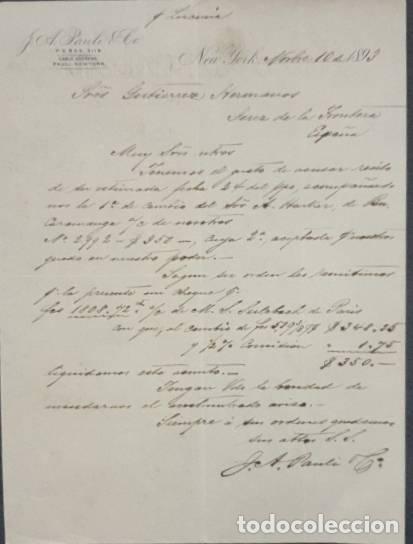 J. A. Pauli & Co
P.O. BOX
CABLE ADDRESS
PAULI, NEWYORK.
New York, Novbre 10 de 1893
Sres Gutierrez Hermanos
Jerez de la Frontera
España
Muy Sres ntros
Tenemos el gusto de acusar recibo
de su estimada fecha 24 del ppo, acompañando
nos la 1a de cambio del Sor A. Harbier, de
a/c de nosotros
No. 2992 - $350 -, cuya 2a aceptada
queda en nuestro poder. -
Segun su orden les remitimos
p. la presente un cheque p.
fcs 1808.72 c/o de M. S. Sulzbach de Paris
con que, al cambio de fcs $348.25
y 1/2 % Comision " 1.75
$350. -
liquidamos este asunto. -
Tengan Vds la bondad de
mandarnos el acostumbrado aviso. -
Siempre á sus ordenes quedamos
sus attos S. S.
J. A. Pauli & Co
todocoleccion